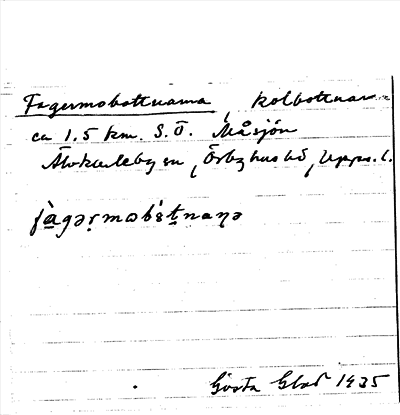 Fagermobottnarna, kolbottnar
ca 1.5 km. S.Ö. Måsjön
Älvkarleby sn, Örbyhus hd, Upps. l.
fàgəṛmobɛ́tnaɳə
Gösta Glad 1935